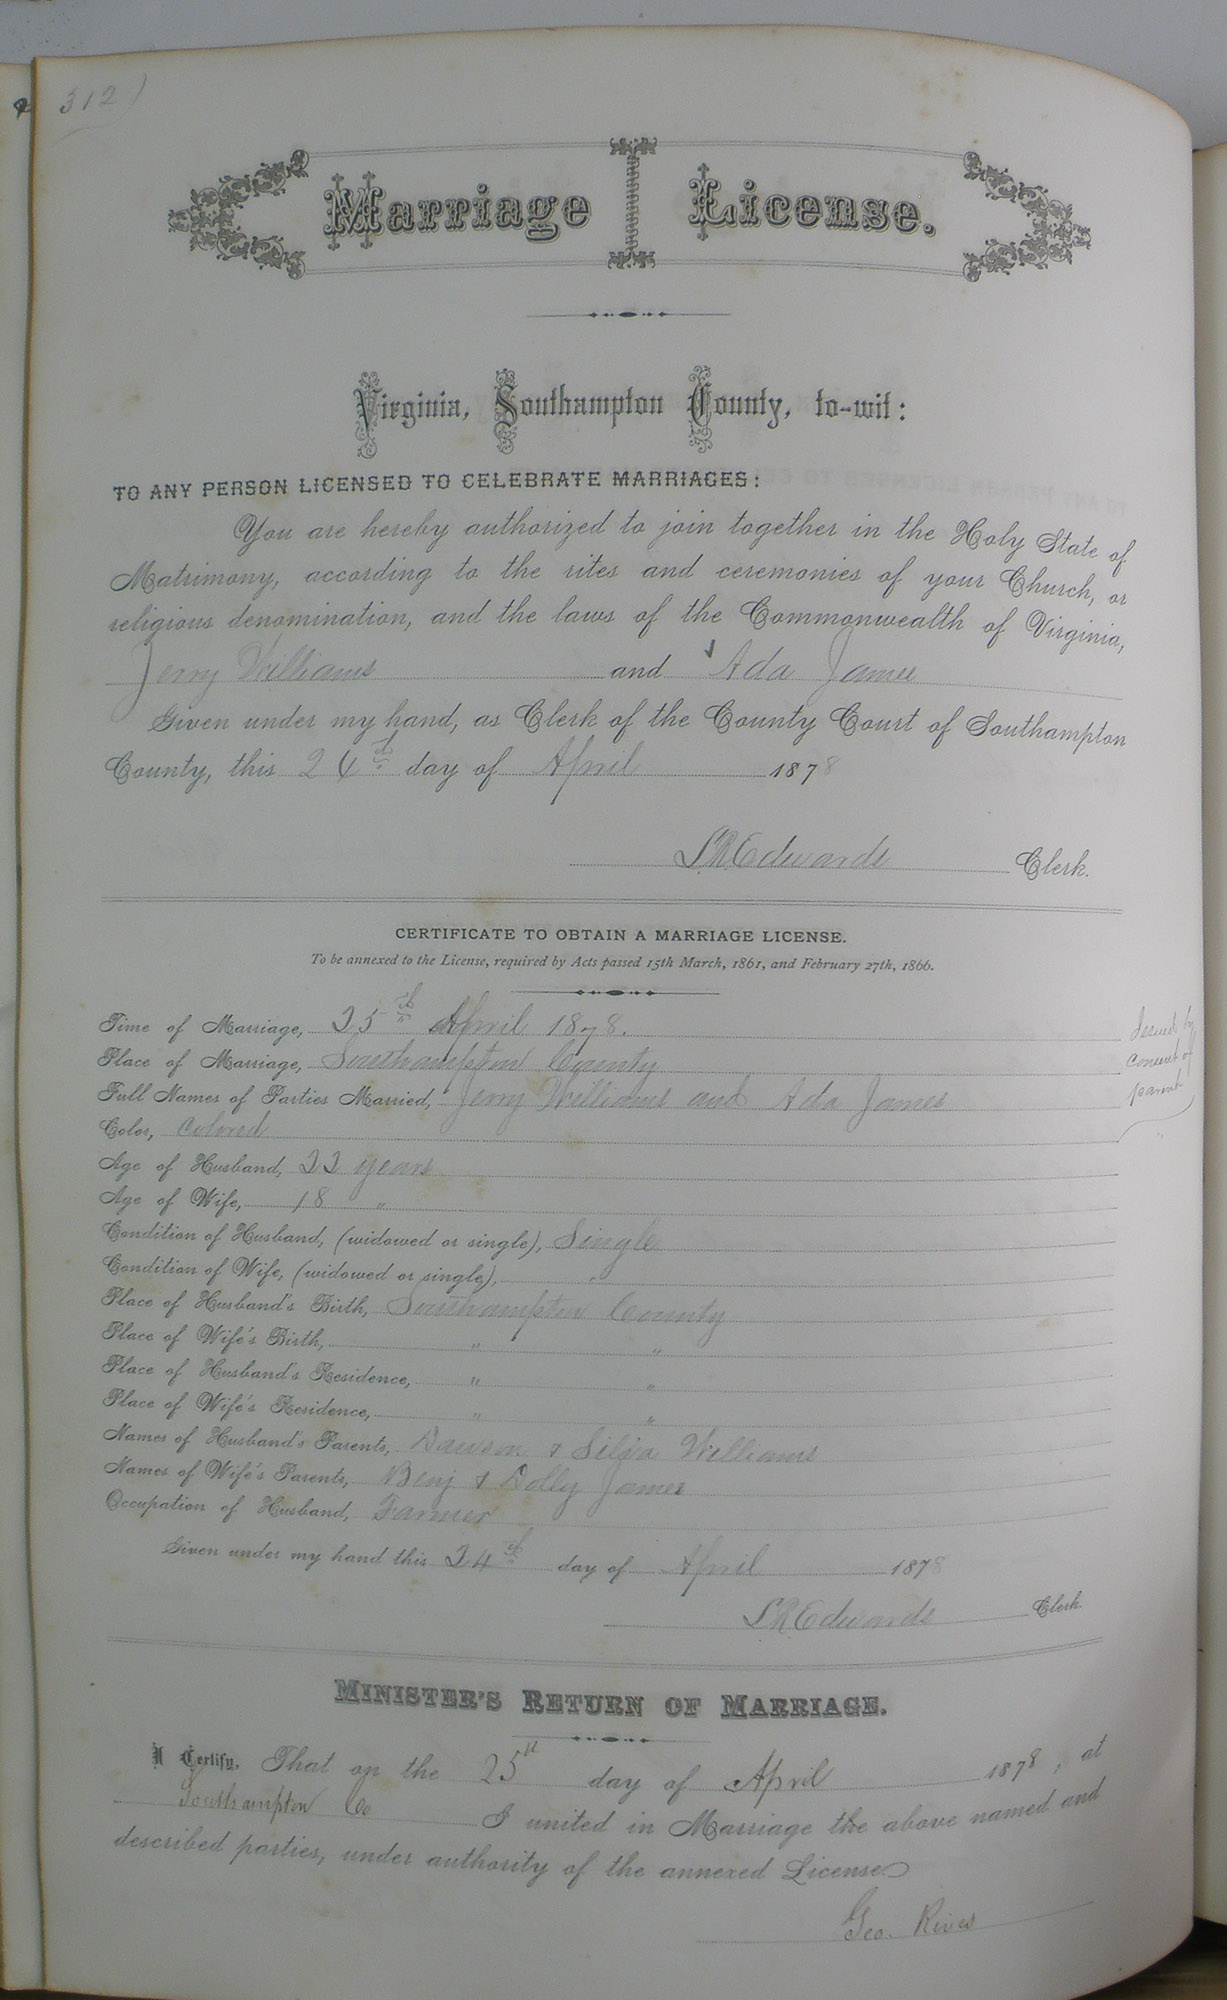 312)
Marriage License.
Virginia, Southampton County, to-wit:
TO ANY PERSON LICENSED TO CELEBRATE MARRIAGES:
You are hereby authorized to join together in the Holy State of
Matrimony, according to the rites and ceremonies of your Church, or
religious denomination, and the laws of the Commonwealth of Virginia,
Jerry Williams and Ada James
Given under my hand, as Clerk of the County Court of Southampton
County, this 24th day of April 1878
L.R. Edwards Clerk.
CERTIFICATE TO OBTAIN A MARRIAGE LICENSE.
To be annexed to the License, required by Acts passed 15th March, 1861, and February 27th, 1866.
Time of Marriage, 25th April 1878.
Place of Marriage, Southampton County
Full Names of Parties Married, Jerry Williams and Ada James
Color, Colored
Issued by
consent of
parent
Age of Husband, 22 years
Age of Wife, 18 "
Condition of Husband, (widowed or single), Single
Condition of Wife, (widowed or single), "
Place of Husband's Birth, Southampton County
Place of Wife's Birth, " "
Place of Husband's Residence, " "
Place of Wife's Residence, " "
Names of Husband's Parents, Dawson & Silvia Williams
Names of Wife's Parents, Benj & Dolly James
Occupation of Husband, Farmer
Given under my hand this 24th day of April 1878
L R Edwards Clerk
MINISTER'S RETURN OF MARRIAGE.
I Certify, That on the 25th day of April 1878, at
Southampton Co I united in Marriage the above named and
described parties, under authority of the annexed License.
Geo. Rives